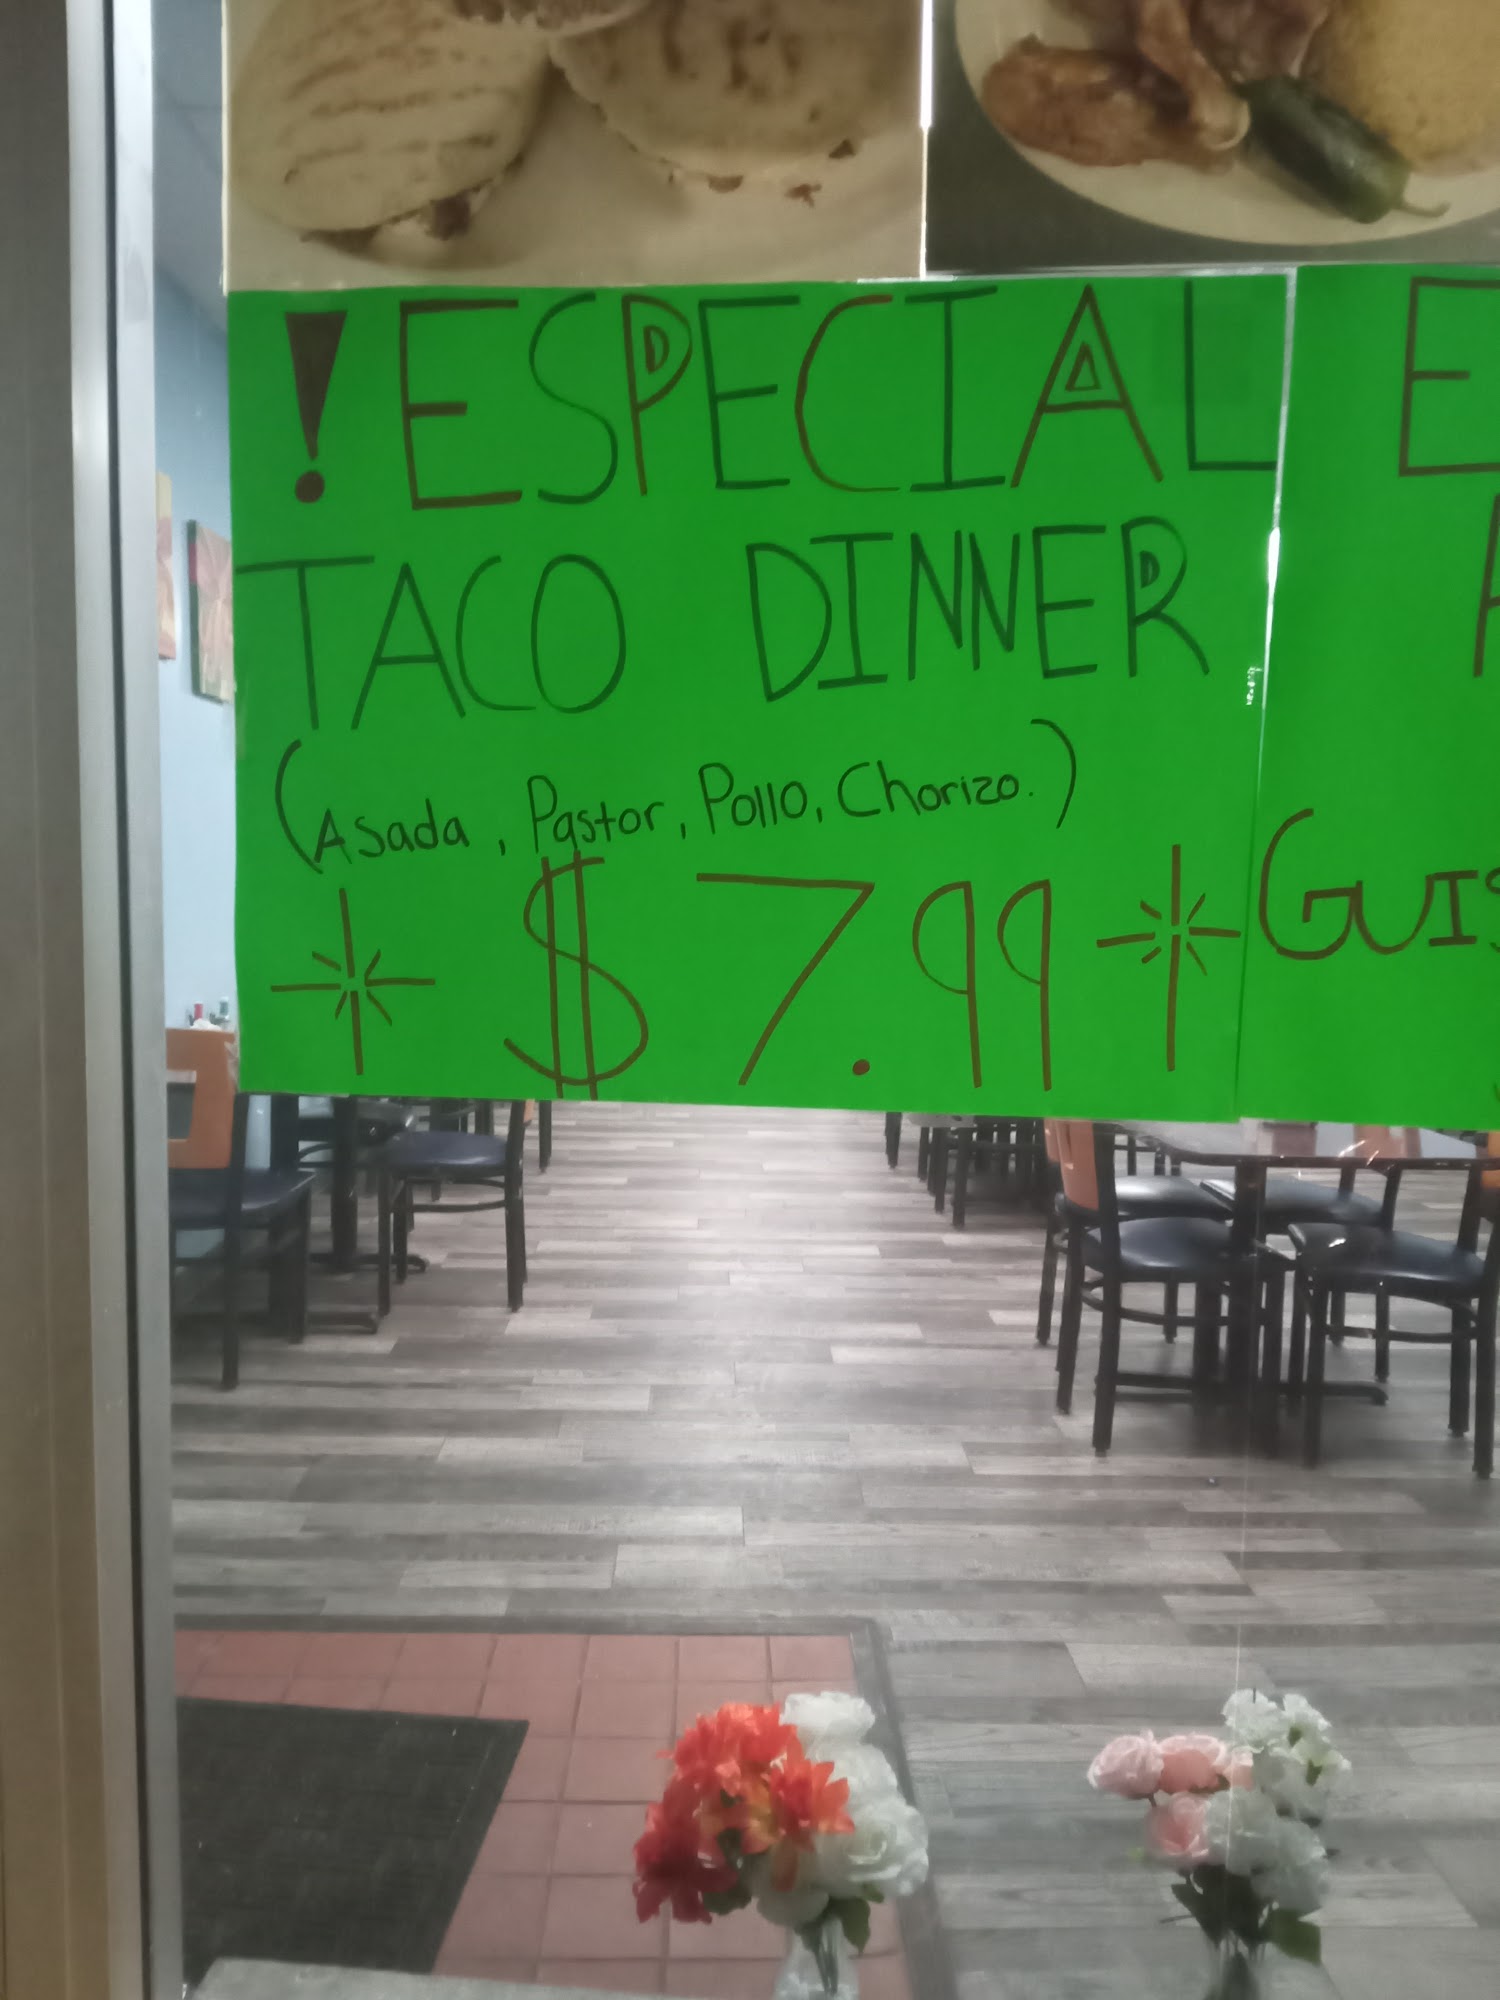 !ESPECIAL
TACO DINNER
(Asada, Pastor, Pollo, Chorizo.)
$7.99